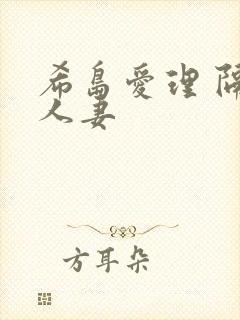 希島愛理 隔
人妻
方耳朵